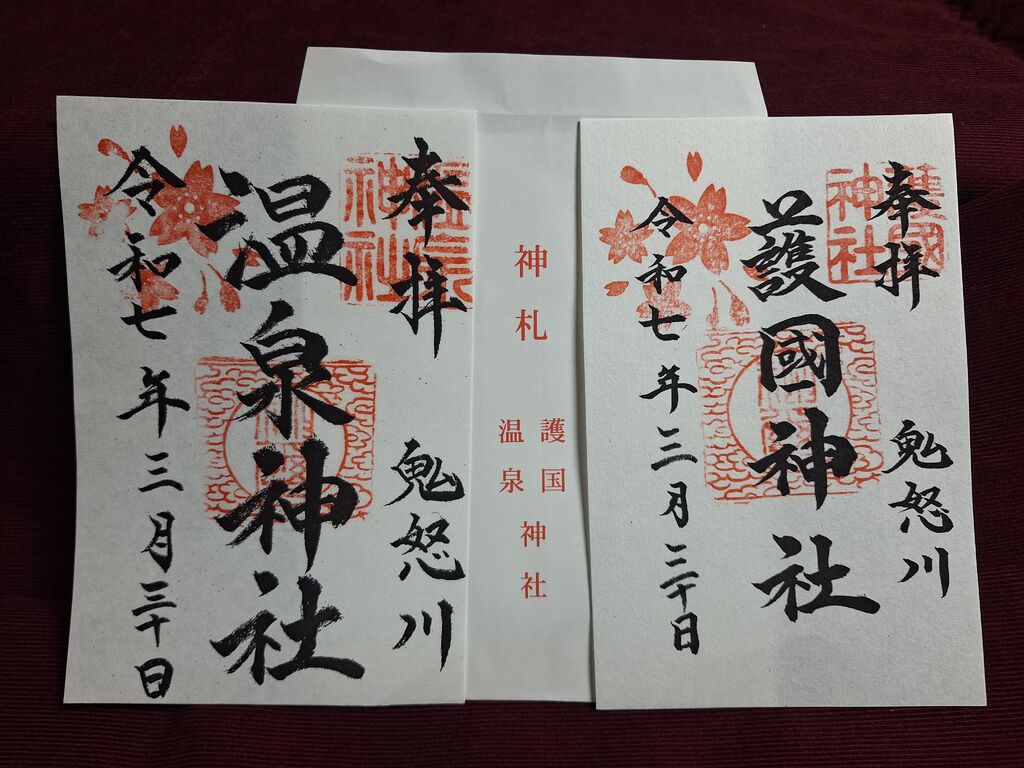 奉拝
鬼怒川
護國神社
令和七年三月三十日
神札
護国
温泉
神社
奉拝
鬼怒川
温泉神社
令和七年三月三十日